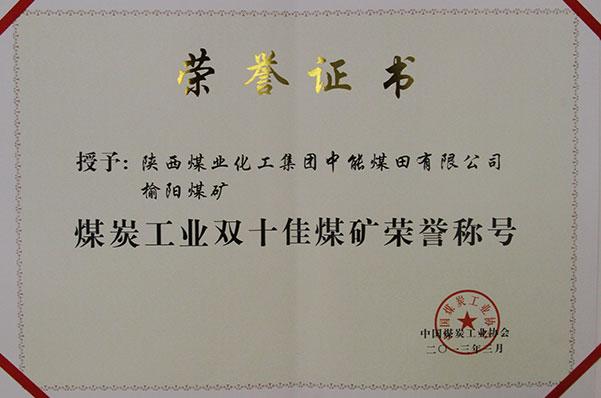 荣誉证书
授予：陕西煤业化工集团中能煤田有限公司
榆阳煤矿
煤炭工业双十佳煤矿荣誉称号
中国煤炭工业协会
中国煤炭工业协会
二〇一三年三月